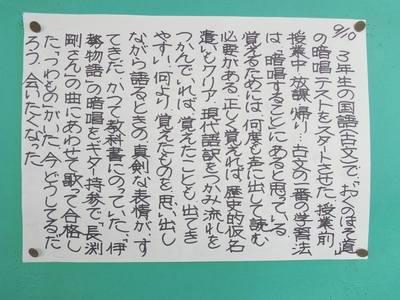 9/10 3年生の国語(古文)で、「おくのほそ道」
の暗唱テストをスタートさせた。授業前
授業中、放課、帰り…古文の一番の学習法
は、「暗唱すること」にあると思っている。
覚えるためには、何度も声に出して読む
必要がある。正しく覚えれば、歴史的仮名
遣いもクリア。現代語訳をつかみ、流れを
つかんでいれば、覚えたことも出てき
やすい。何より、覚えたものを思い出し
ながら語るときの、真剣な表情が、す
てきだ。かつて教科書にのっていた、「伊
勢物語」の暗唱をギター持参で、「長渕
剛さん」の曲にあわせて歌って合格し
た、「つわもの」がいた。今、どうしてるだ
ろう。会いたくなった。